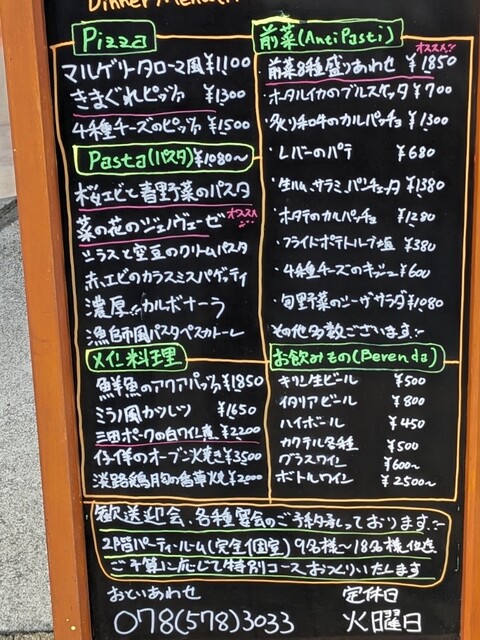 Dinner Menu
Pizza
マルゲリータローマ風 ¥1,100
きまぐれピッツァ ¥1300
4種チーズのピッツァ ¥1500
Pasta(パスタ)¥1080〜
桜エビと春野菜のパスタ
菜の花のジェノヴェーゼ オススメ
シラスと空豆のクリームパスタ
赤エビのカラスミスパゲッティ
濃厚カルボナーラ
漁師風パスタペスカトーレ
メイン料理
鮮魚のアクアパッツァ ¥1850
ミラノ風カツレツ ¥1650
三田ポークの白ワイン煮 ¥2200
仔羊のオーブン焼き ¥3500
淡路鶏胸の香草焼 ¥2000
前菜(AntiPasti)
オススメ!!
・前菜8種盛りあわせ ¥1850
・ホタルイカのブルスケッタ ¥700
・炙り和牛のカルパッチョ ¥1300
・レバーのパテ ¥680
・生ハム、サラミ、パンチェッタ ¥1380
・ホタテのカルパッチョ ¥1280
・フライドポテトトリュフ塩 ¥380
・4種チーズのキッシュ ¥600
・旬野菜のシーザーサラダ ¥1,080
その他多数ございます
お飲みもの(Berenda)
キリン生ビール ¥500
イタリアビール ¥800
ハイボール ¥450
カクテル各種 ¥500
グラスワイン ¥600〜
ボトルワイン ¥2500〜
歓送迎会、各種宴会のご予約承っております
2階パーティールーム(完全個室) 9名様〜18名様位迄
ご予算に応じて特別コースおつくりいたします
おといあわせ
078(578)3033
定休日
火曜日